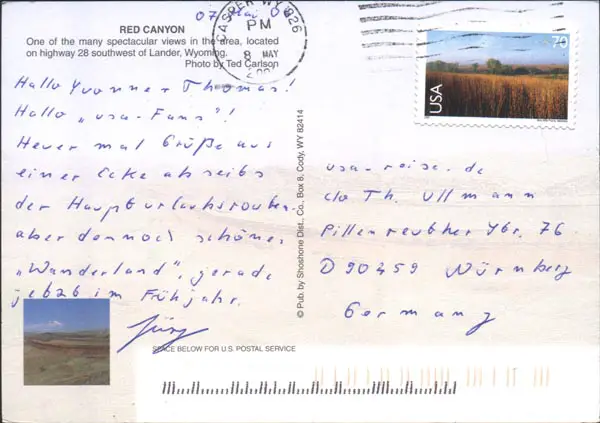 RED CANYON
One of the many spectacular views in the area, located
on highway 28 southwest of Lander, Wyoming.
Photo by Ted Carlson
07. Mai
Hallo Yvonne + Thomas!
Hallo „usa-Fans"!
Heuer mal Grüße aus
einer Ecke abseits
der Haupturlaubsrouten.
aber dennoch schönes
„Wanderland", gerade
jetzt im Frühjahr.
Jürg
SPACE BELOW FOR U.S. POSTAL SERVICE
© Pub. by Shoshone Dist., Co., Box 8, Cody, WY 82414
CASPER WY 826
PM
8 MAY
USA
70
usa-reise.de
c/o Th. Ullmann
Pillenreuther Str. 76
D 90459 Nürnberg
Germany